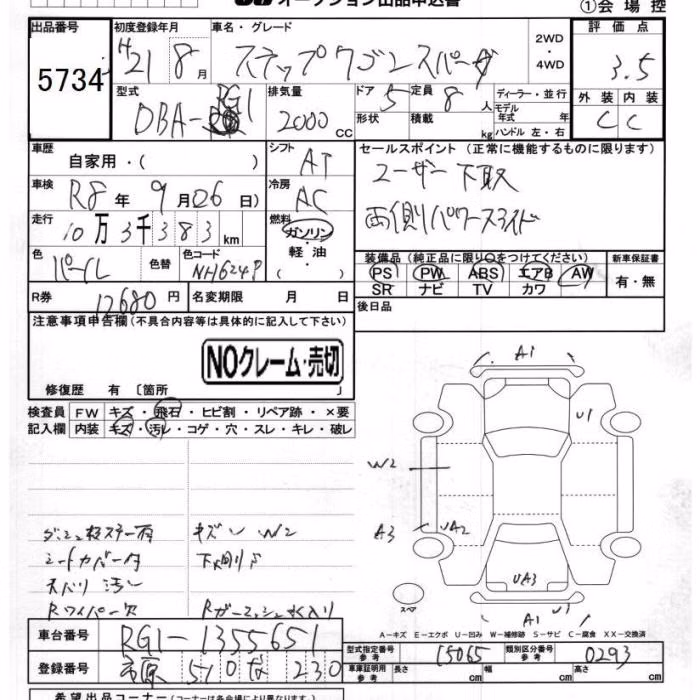 オークション出品申込書
①会場控
出品番号 初度登録年月 車名・グレード 2WD・4WD 評価点
5734 H21 8月 ステップワゴンスパーダ 3.5
型式 排気量 ドア 定員 ディーラー・並行 外装 内装
DBA-RG1 2000cc 5 8人 モデル年式 年 C C
形状 積載 kg ハンドル 左・右
車歴 シフト セールスポイント (正常に機能するものに限ります)
自家用・( ) AT ユーザー下取
車検 冷房
R8年 9月06日) AC 両側パワースライド
走行 燃料
10万3千383km ガソリン
色 色替 色コード 軽油 装備品 (純正品に限り○をつけてください) 新車保証書
パール NH624P ( ) PS PW ABS エアB AW 有・無
SR ナビ TV カワ
R券 12680円 名変期限 月 日 後日品
注意事項申告欄(不具合内容等は具体的に記入して下さい)
NOクレーム・売切
修復歴 有 〔箇所 〕
検査員 FW キズ・飛石・ヒビ割・リペア跡・×要
記入欄 内装 キズ・汚レ・コゲ・穴・スレ・キレ・破レ
A1
U1
W2
A3 UA2
UA3
スペア
A1 U1
キズ W2
シートカバー 下廻り
天バリ 汚レ
Rワイパー欠
A-キズ E-エクボ U-凹み W-補修跡 S-サビ C-腐食 XX-交換済
車台番号 RG1-1355651
型式指定番号 参考 15065 類別区分番号 参考 0293
登録番号 市原 510 な 230
車庫証明用 参考 長さ cm 幅 cm 高さ cm
希望出品コーナー